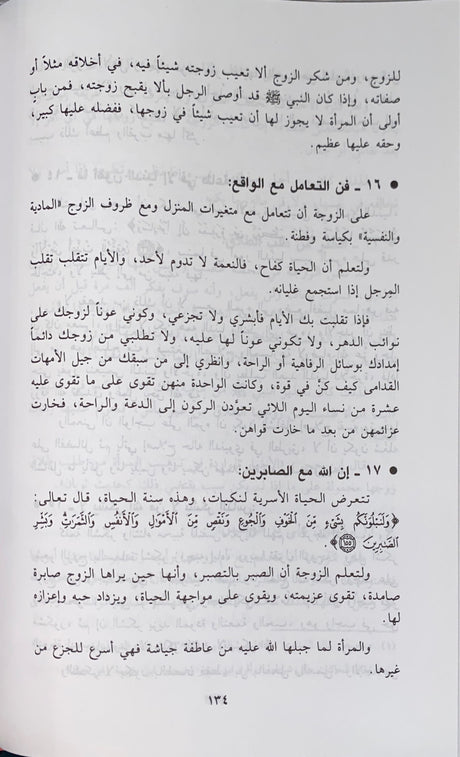 للزوج، ومن شكر الزوج ألا تعيب زوجته شيئاً فيه، في أخلاقه مثلاً أو
صفاته، وإذا كان النبي ﷺ قد أوصى الرجل بألا يقبح زوجته، فمن باب
أولى أن المرأة لا يجوز لها أن تعيب شيئاً في زوجها، ففضله عليها كبير،
وحقه عليها عظيم.
● ١٦ ـ فن التعامل مع الواقع:
على الزوجة أن تتعامل مع متغيرات المنزل ومع ظروف الزوج «المادية
والنفسية» بكياسة وفطنة.
ولتعلم أن الحياة كفاح، فالنعمة لا تدوم لأحد، والأيام تتقلب تقلب
المِرجل إذا استجمع غليانه.
فإذا تقلبت بك الأيام فأبشري ولا تجزعي، وكوني عوناً لزوجك على
نوائب الدهر، ولا تكوني عوناً لها عليه، ولا تطلبي من زوجك دائماً
إمدادك بوسائل الرفاهية أو الراحة، وانظري إلى من سبقك من جيل الأمهات
القدامى كيف كنَّ في قوة، وكانت الواحدة منهن تقوى على ما تقوى عليه
عشرة من نساء اليوم اللاتي تعوَّدن الركون إلى الدعة والراحة، فخارت
عزائمهن من بعد ما خارت قواهن.
● ١٧ ـ إن الله مع الصابرين:
تتعرض الحياة الأسرية لنكبات، وهذه سنة الحياة، قال تعالى:
﴿وَلَنَبْلُوَنَّكُم بِشَىْءٍ مِّنَ ٱلْخَوْفِ وَٱلْجُوعِ وَنَقْصٍ مِّنَ ٱلْأَمْوَٰلِ وَٱلْأَنفُسِ وَٱلثَّمَرَٰتِ وَبَشِّرِ
ٱلصَّٰبِرِينَ ١٥٥﴾.
ولتعلم الزوجة أن الصبر بالتصبر، وأنها حين يراها الزوج صابرة
صامدة، تقوى عزيمته، ويقوى على مواجهة الحياة، ويزداد حبه وإعزازه
لها.
والمرأة لما جبلها الله عليه من عاطفة جياشة فهي أسرع للجزع من
غيرها.
١٣٤